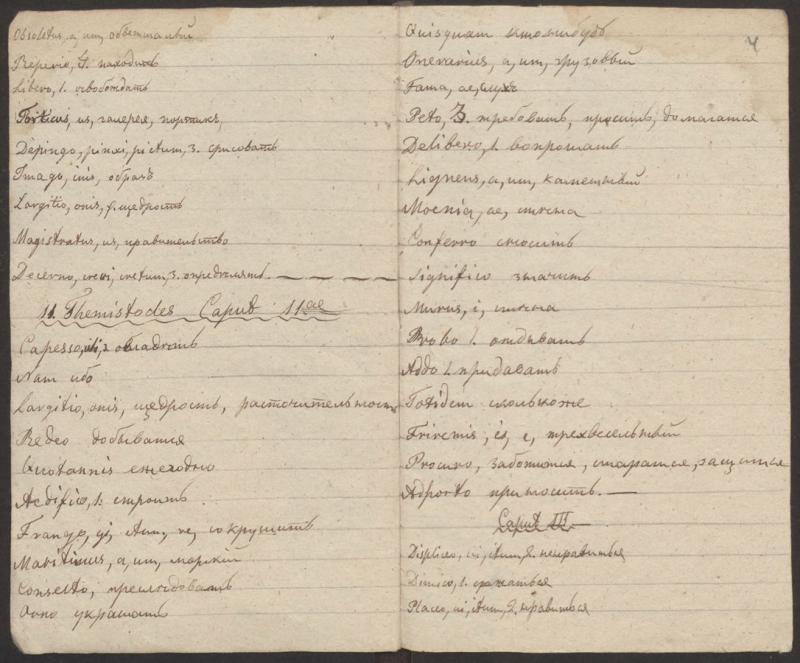 Obsoletus, a, um, обветшалый
Reperio, 4. находить
Libero, 1. освобождать
Porticus, us, галерея, портикъ,
Depingo, pinxi, pictum, 3. срисовать
Imago, inis, образъ
Largitio, onis, f. щедрость
Magistratus, us, правительство
Decerno, crevi, cretum, 3. определять.
11. Themistocles Caput 11ае
Capesso, овладеть
Nam ибо
Largitio, onis, щедрость, расточительность
Redeo добывается
Quotannis ежегодно
Aedifico, 1. строить.
Frango, gi, ctum, re, сокрушить
Maritimus, a, um, морской
Consecto, преследовать
Orno украшать
4
Quisquam кто нибудь
Onerarius, a, um, грузовый
Fama, ae, слухъ
Peto, 3. требовать, просить, домагатся
Delibero, 1. вопрошать
Ligneus, a, um, каменный
Moenia, ae, стена
Conferro сносить
Significo значить
Murus, i, стена
Probo 1.
Addo 1. придавать
Totidem сколькоже
Triremis, is, e, трехвесельный
Procuro, заботится, старатся,
Adporto приносить.
Caput III.
Displiceo, ui, itum, 2. ненравиться
Dimico, 1. сражаться
Placeo, ui, itum, 2. нравиться